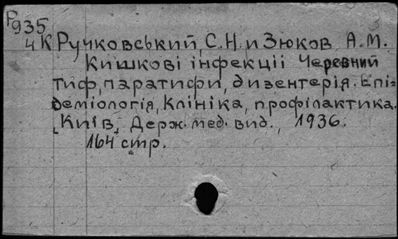 Р935
4К Ручковський, С.Н. и Зюков А.М.
Кишкові інфекції Черевний
тиф, паратифи, дизентерія. Епі-
деміологія, Клініка, профілактика.
Київ, Держ. мед. вид., 1936.
164 стр.